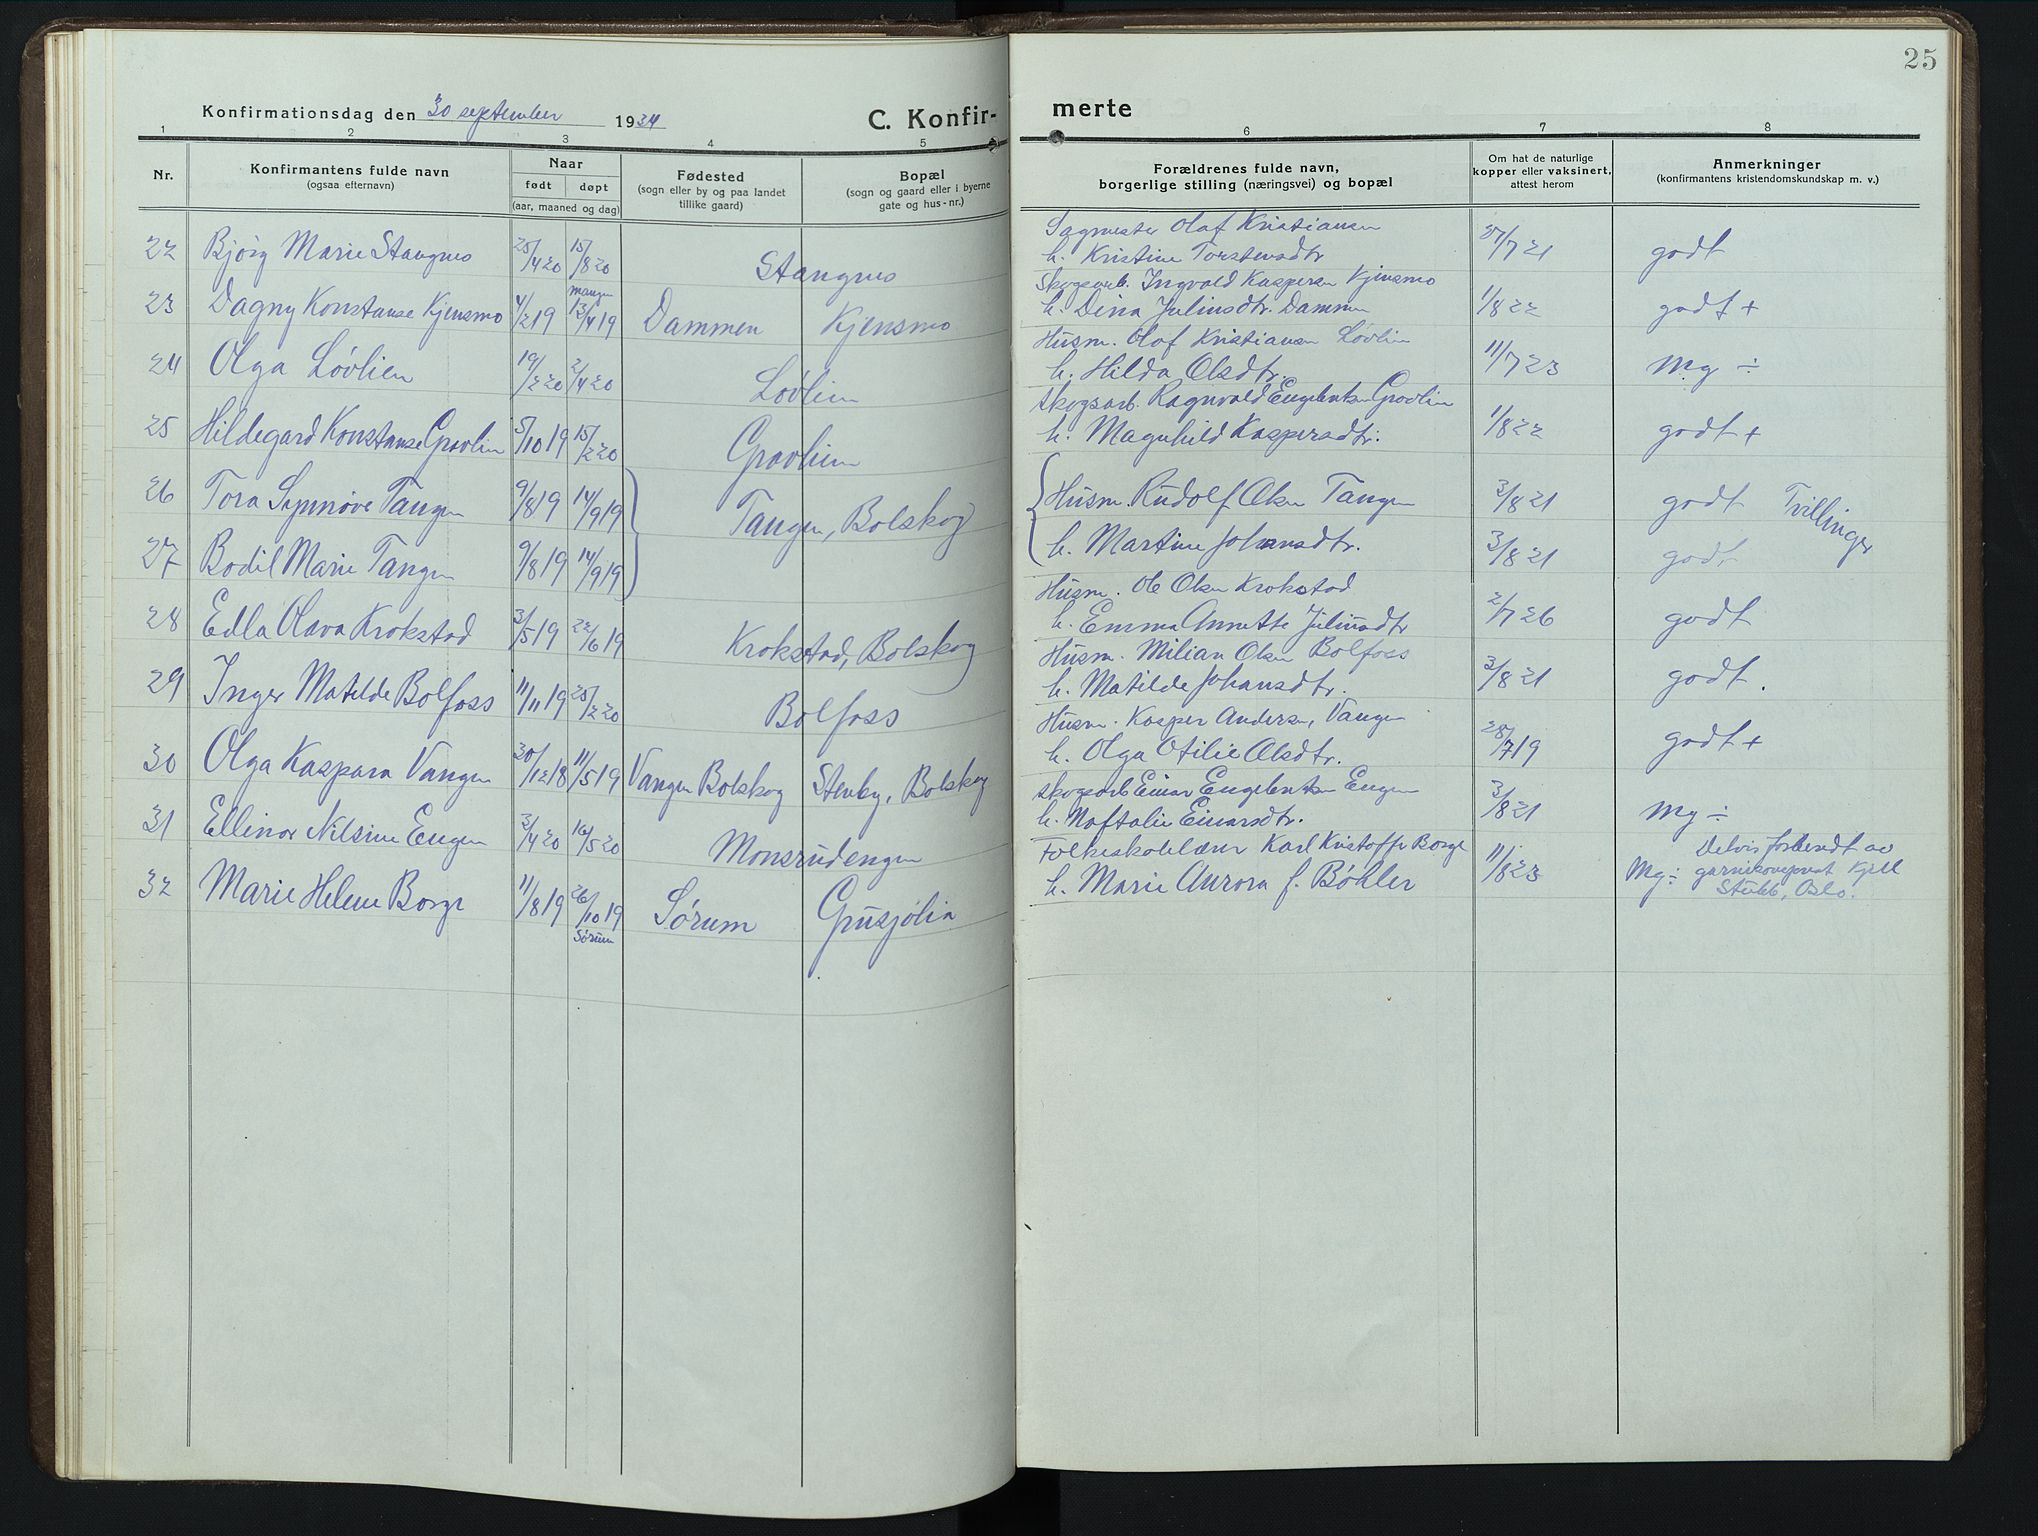 25
Konfirmationsdag den 30 september 1934
C. Konfir-
merte
1 2 3 4 5 6 7 8
Nr.
Konfirmantens fulde navn
(ogsaa efternavn)
Naar
født døpt
(aar, maaned og dag)
Fødested
(sogn eller by og paa landet
tillike gaard)
Bopæl
(sogn og gaard eller i byerne
gate og hus-nr.)
Forældrenes fulde navn,
borgerlige stilling (næringsvei) og bopæl
Om hat de naturlige
kopper eller vaksinert,
attest herom
Anmerkninger
(konfirmantens kristendomskundskap m. v.)
22 Bjørg Marie Stangnes 25/4 20 15/8 20 Stangnes
Sagmester Olaf Kristiansen
h. Kristine Torstensdtr 27/7 21 godt
23 Dagny Konstanse Kjensmo 4/2 19 mangen 13/4 19 Dammen Kjensmo
Skogsarb. Ingvald Kaspersen Kjensmo
h. Dina Juliusdtr. Dammen 1/8 22 godt +
24 Olga Løvlien 19/2 20 2/4 20 Løvlien
Husm. Olaf Kristiansen Løvlien
h. Hilda Olsdtr. 11/7 23 Mg ÷
25 Hildegard Konstanse Gravlien 5/10 19 15/2 20 Gravlien
Skogsarb. Ragnvald Engebretsen Gravlien
h. Magnhild Kaspersdtr. 1/8 22 godt +
26 Tora Synnøve Tangen 9/8 19 14/9 19 Tangen, Bolskog
Husm. Rudolf Olsen Tangen 3/8 21 godt Tvillinger
27 Bodil Marie Tangen 9/8 19 14/9 19
h. Martine Johansdtr. 3/8 21 godt
28 Edla Olava Krokstad 3/5 19 22/6 19 Krokstad, Bolskog
Husm. Ole Olsen Krokstad
h. Emma Annette Juliusdtr 2/7 26 godt
29 Inger Matilde Bolfoss 11/11 19 25/2 20 Bolfoss
Husm. Milian Olsen Bolfoss
h. Matilde Johansdtr. 3/8 21 godt.
30 Olga Kaspara Vangen 30/12 18 11/5 19 Vangen Bolskog Stenby, Bolskog
Husm. Kasper Andersen, Vangen
h. Olga Otilie Olsdtr. 28/7 19 godt +
31 Ellinor Nilsine Engen 3/4 20 16/5 20 Monsrudengen
Skogsarb Einar Engebretsen Engen
h. Naftalie Einarsdtr. 3/8 21 Mg ÷
32 Marie Helene Borge 11/8 19 26/10 19 Sørum Sørum Grusjølia
Folkeskolelærer Karl Kristoffer Borge
h. Marie Aurora f. Bøhler 11/8 23 Mg ÷
Delvis forberedt av
garnisonsprest Kjell
Stub, Oslo.